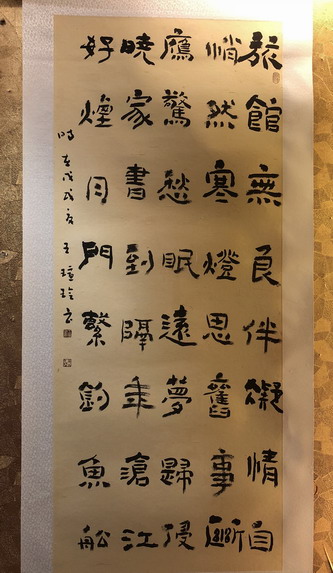 旅館無良伴凝情自
悄然寒燈思舊事斷
鴈驚愁眠遠夢歸侵
曉家書到隔年滄江
好煙月門繫釣魚船
時在戊戌 王